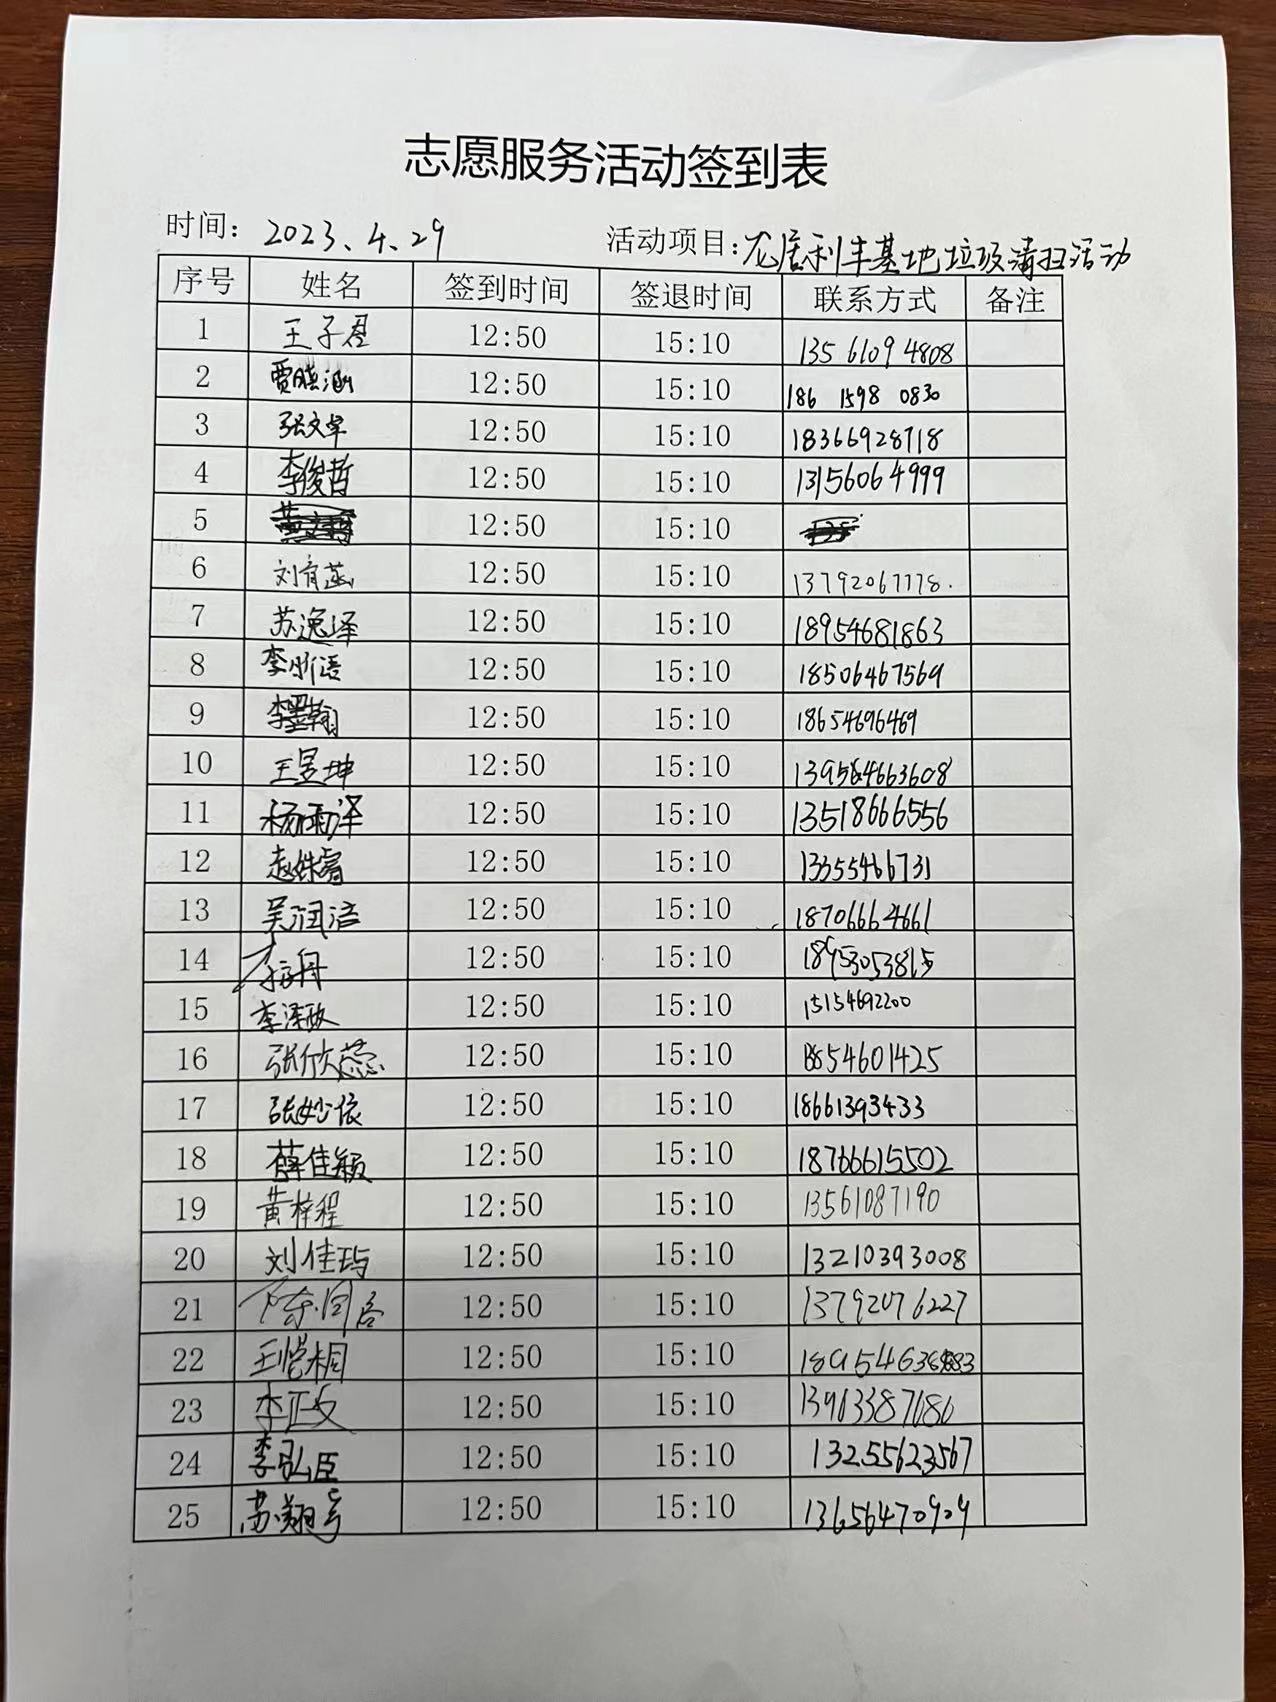 志愿服务活动签到表
时间: 2023、4、29 活动项目:龙居利丰基地垃圾清扫活动
序号 姓名 签到时间 签退时间 联系方式 备注
1 王子君 12:50 15:10 135 6109 4808
2 贾晓涵 12:50 15:10 186 1598 0830
3 张文卓 12:50 15:10 18366928718
4 李俊哲 12:50 15:10 13156064999
5 12:50 15:10
6 刘育菡 12:50 15:10 13792067778.
7 苏逸泽 12:50 15:10 18954681863
8 李昕语 12:50 15:10 18506467569
9 李墨翰 12:50 15:10 18654696469
10 王昱坤 12:50 15:10
11 杨雨泽 12:50 15:10 13518666556
12 赵姝睿 12:50 15:10 13355466731
13 吴润洁 12:50 15:10 18706664661
14 12:50 15:10 18953053815
15 李泽政 12:50 15:10 15154692200
16 张欣蕊 12:50 15:10 18854601425
17 张妙依 12:50 15:10 18661393433
18 薛佳颖 12:50 15:10 18766615502
19 黄梓程 12:50 15:10 13561087190
20 刘佳玙 12:50 15:10 13210393008
21 12:50 15:10 13792076227
22 王恺桐 12:50 15:10
23 李正文 12:50 15:10 13963387686
24 李弘臣 12:50 15:10 13255623567
25 苏翔宇 12:50 15:10 13656470909